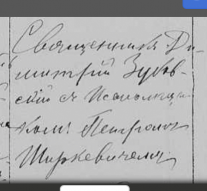 Священникъ Ди-
митрій Зубов-
скій съ Псаломщи-
комъ Петромъ
Ширкевичемъ